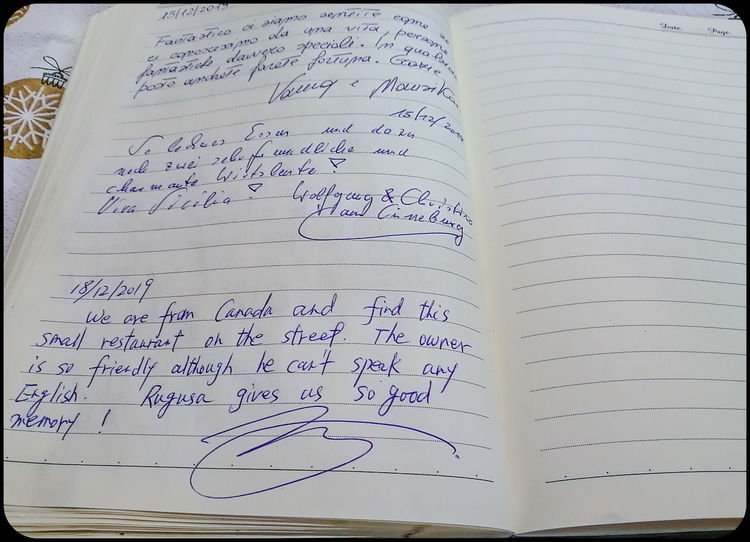 15/12/2019
Fantastico ci siamo sentite come se
ci conoscessimo da una vita, persone
fantastiche davvero speciali. In qualsiasi
posto andrete farete fortuna. Grazie
e
15/12/2019
So leckeres Essen und dazu
noch zwei sehr freundliche und
charmante Wirtsleute!
Viva Sicilia! Wolfgang & Christine
aus Lüneburg
18/12/2019
We are from Canada and find this
small restaurant on the street. The owner
is so friendly although he can't speak any
English. Rugusa gives us so good
memory!
Date Page